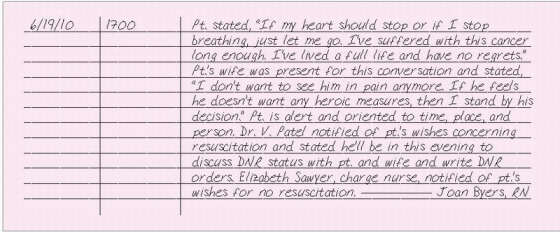 6/19/10 1700 Pt. stated, "If my heart should stop or if I stop
breathing, just let me go. I've suffered with this cancer
long enough. I've lived a full life and have no regrets."
Pt.'s wife was present for this conversation and stated,
"I don't want to see him in pain anymore. If he feels
he doesn't want any heroic measures, then I stand by his
decision." Pt. is alert and oriented to time, place, and
person. Dr. V. Patel notified of pt.'s wishes concerning
resuscitation and stated he'll be in this evening to
discuss DNR status with pt. and wife and write DNR
orders. Elizabeth Sawyer, charge nurse, notified of pt.'s
wishes for no resuscitation. ———— Joan Byers, RN